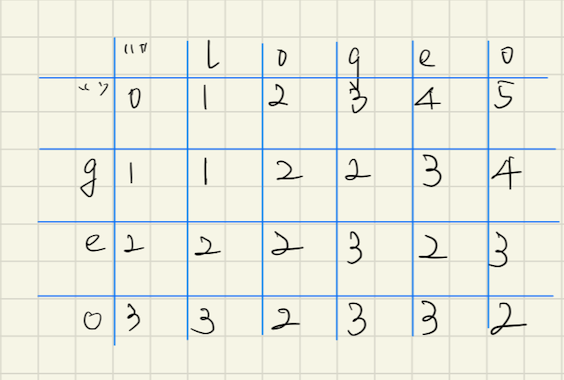 "" l o g e o
"" 0 1 2 3 4 5
g 1 1 2 2 3 4
e 2 2 2 3 2 3
o 3 3 2 3 3 2